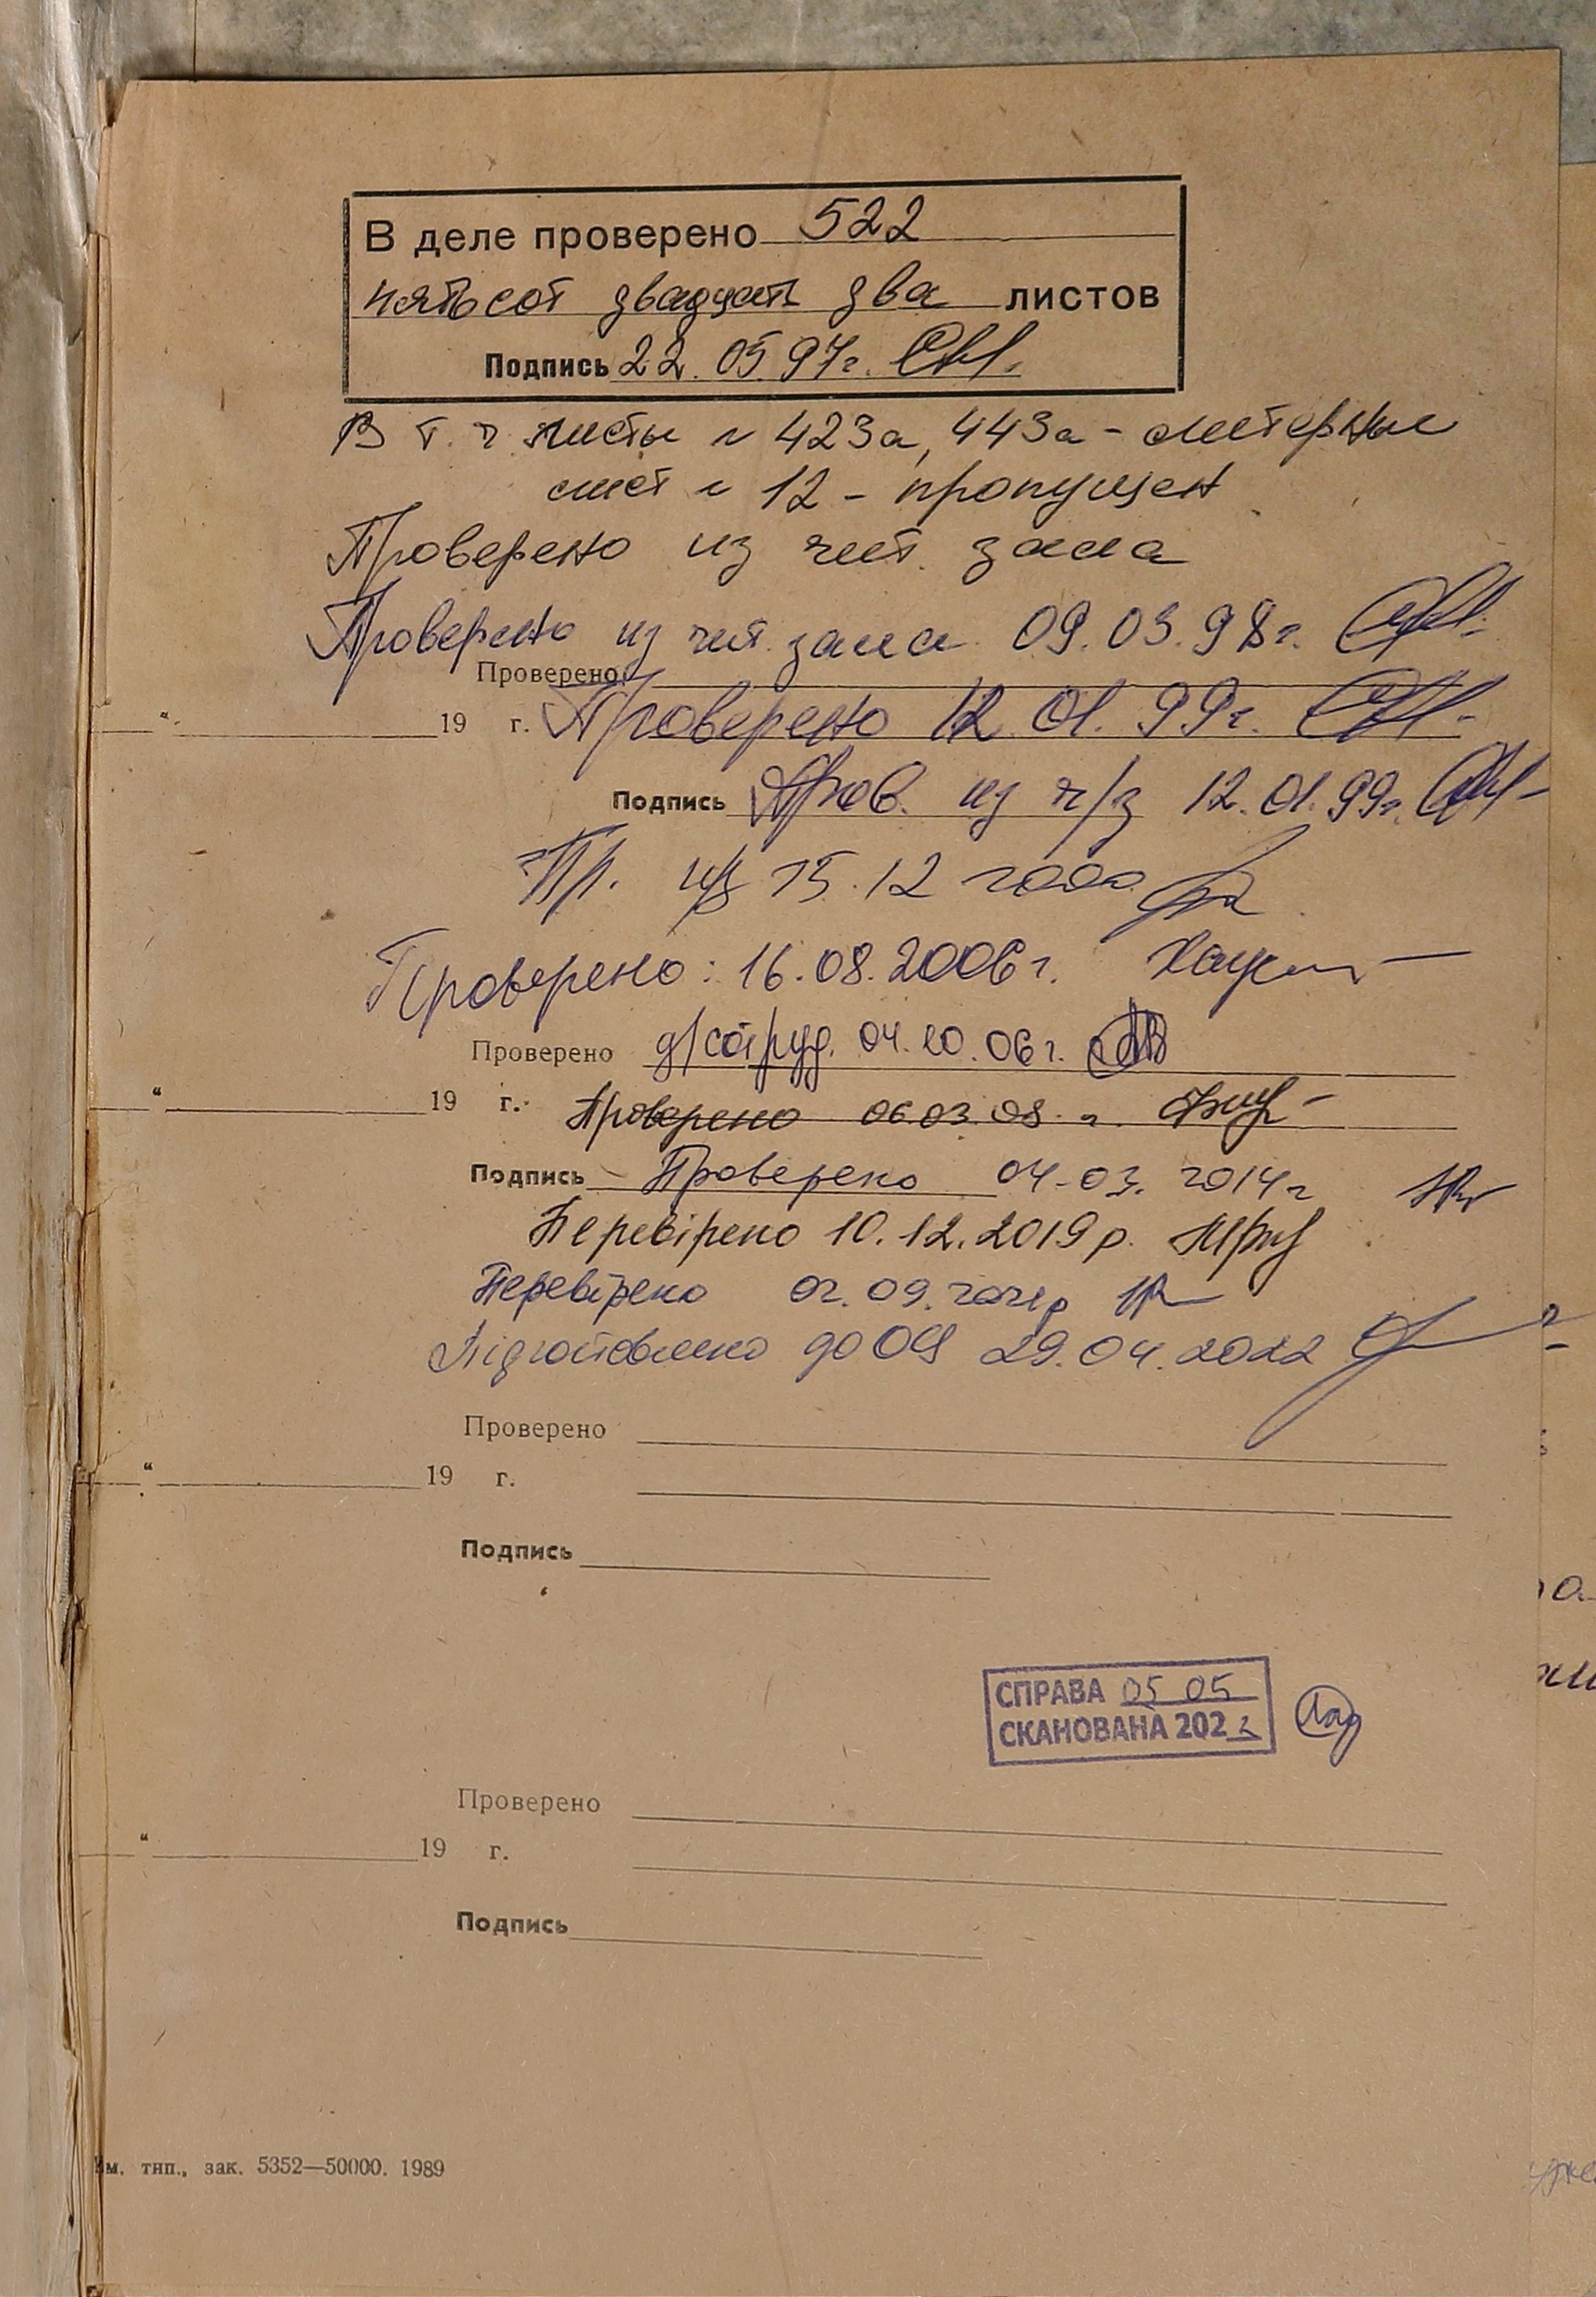 В деле проверено 522
пятьсот двадцать два листов
Подпись 22.05.97г.
В т.ч листы № 423а, 443а - литерные
лист № 12 - пропущен
Проверено из чит. зала
Проверено из чит. зала 09.03.98г.
Проверено
" 19 г. Проверено 12.01.99г.
Подпись Пров. из ч/з 12.01.99г.
Пр. 15.12 2000
Проверено: 16.08.2006г.
Проверено д/сотруд. 04.10.06г.
" 19 г. Проверено 06.03.08 г.
Подпись Проверено 04.03.2014г
Перевірено 10.12.2019р.
Перевірено 02.09.
Підготовлено до ОЦ 29.04.2022
Проверено
" 19 г.
Подпись
СПРАВА 05 05
СКАНОВАНА 2022
Проверено
" 19 г.
Подпись
м. тип., зак. 5352—50000. 1989